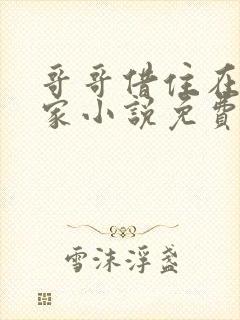 哥哥借住在
家小説免費
雪沫浮盞